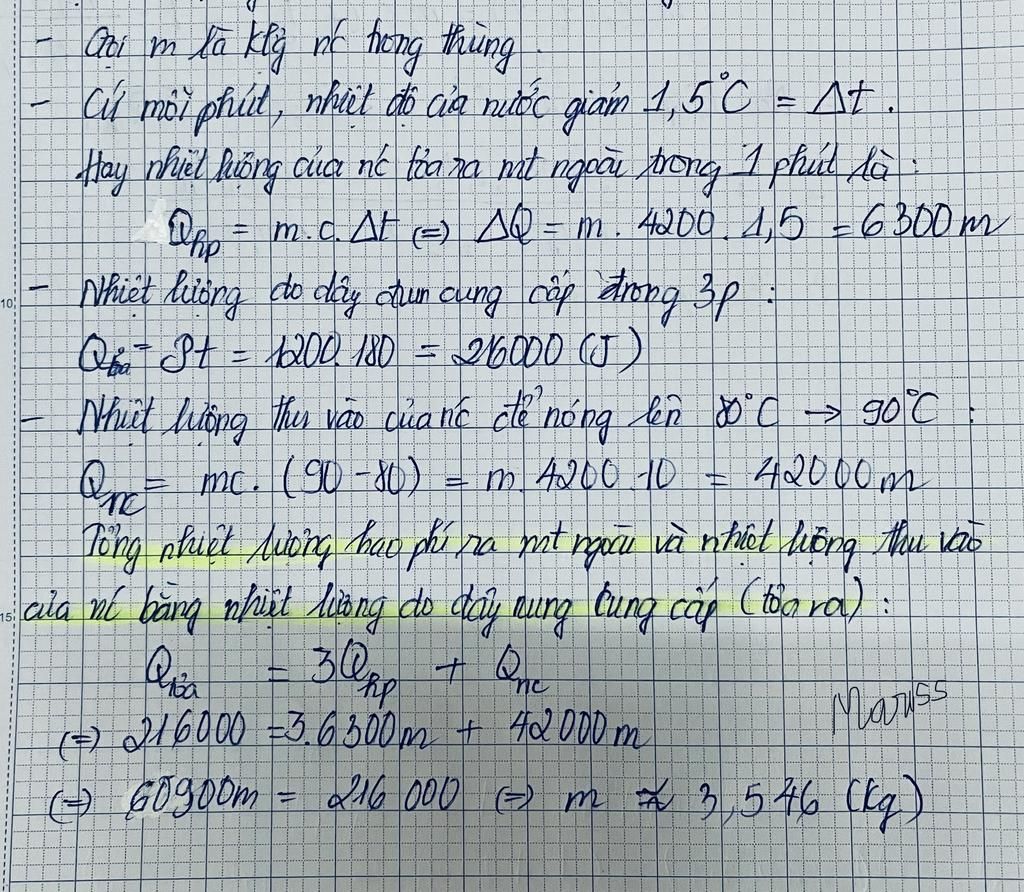 - Gọi m là klg nc trong thùng.
- Cứ mỗi phút, nhiệt độ của nước giảm 1,5°C = Δt.
Hay nhiệt lượng của nc tỏa ra mt ngoài trong 1 phút là:
Qhp = m.c.Δt (=) ΔQ = m. 4200. 1,5 = 6300m
- Nhiệt lượng do dây đun cung cấp trong 3p :
10
Qtỏa = Pt = 1200.180 = 216000 (J)
- Nhiệt lượng thu vào của nc để nóng lên 80°C → 90°C :
Qnc = mc. (90 - 80) = m. 4200 .10 = 42000m
Tổng nhiệt lượng hao phí ra mt ngoài và nhiệt lượng thu vào
của nc bằng nhiệt lượng do dây nung cung cấp (tỏa ra) :
15
Qtỏa = 3Qhp + Qnc
Mariss
(=) 216000 = 3.6300m + 42000m
(=) 60900m = 216 000 (=) m ≈ 3,546 (kg)